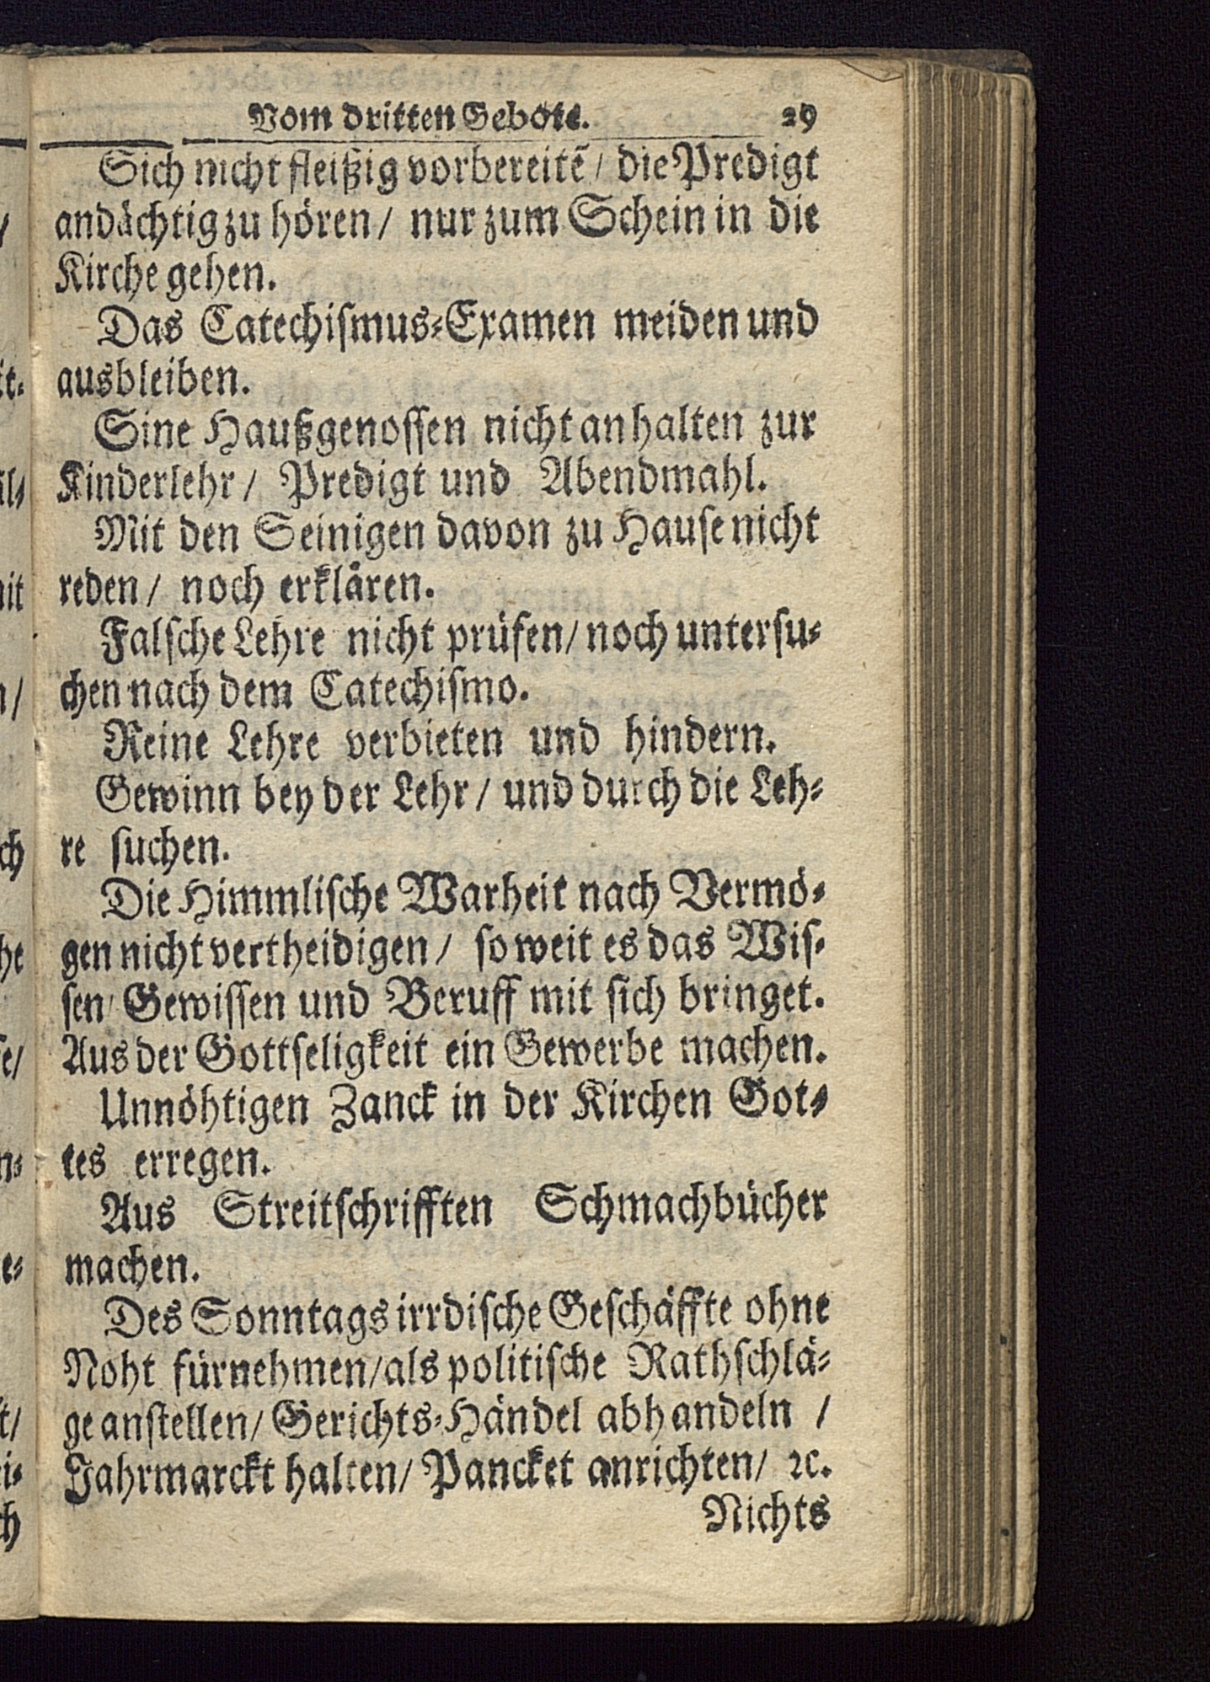 Vom dritten Gebote. 29
Sich nicht fleißig vorbereitẽ / die Predigt
andächtig zu hören / nur zum Schein in die
Kirche gehen.
Das Catechismus-Examen meiden und
ausbleiben.
Sine Haußgenossen nicht anhalten zur
Kinderlehr / Predigt und Abendmahl.
Mit den Seinigen davon zu Hause nicht
reden / noch erklären.
Falsche Lehre nicht prüfen / noch untersu-
chen nach dem Catechismo.
Reine Lehre verbieten und hindern.
Gewinn bey der Lehr / und durch die Leh-
re suchen.
Die Himmlische Warheit nach Vermö-
gen nicht vertheidigen / so weit es das Wis-
sen / Gewissen und Beruff mit sich bringet.
Aus der Gottseligkeit ein Gewerbe machen.
Unnöhtigen Zanck in der Kirchen Got-
tes erregen.
Aus Streitschrifften Schmachbücher
machen.
Des Sonntags irrdische Geschäffte ohne
Noht fürnehmen / als politische Rathschlä-
ge anstellen / Gerichts-Händel abhandeln /
Jahrmarckt halten / Pancket anrichten / ꝛc.
Nichts